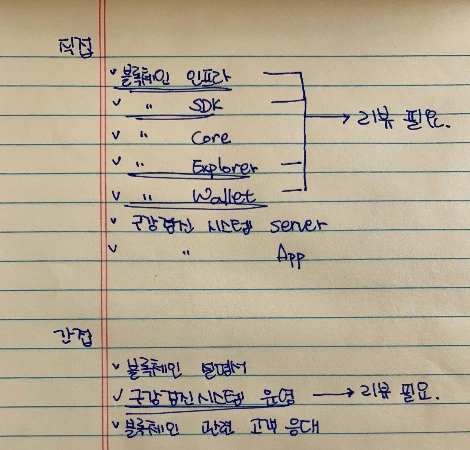 직접
✓ 블록체인 인프라
✓ 〃 SDK
→ 리뷰 필요.
✓ 〃 Core
✓ 〃 Explorer
✓ 〃 Wallet
✓ 구강검진 시스템 server
✓ 〃 App
간접
✓ 블록체인 설명서
✓ 구강검진시스템 운영 → 리뷰 필요.
✓ 블록체인 관련 고객 응대